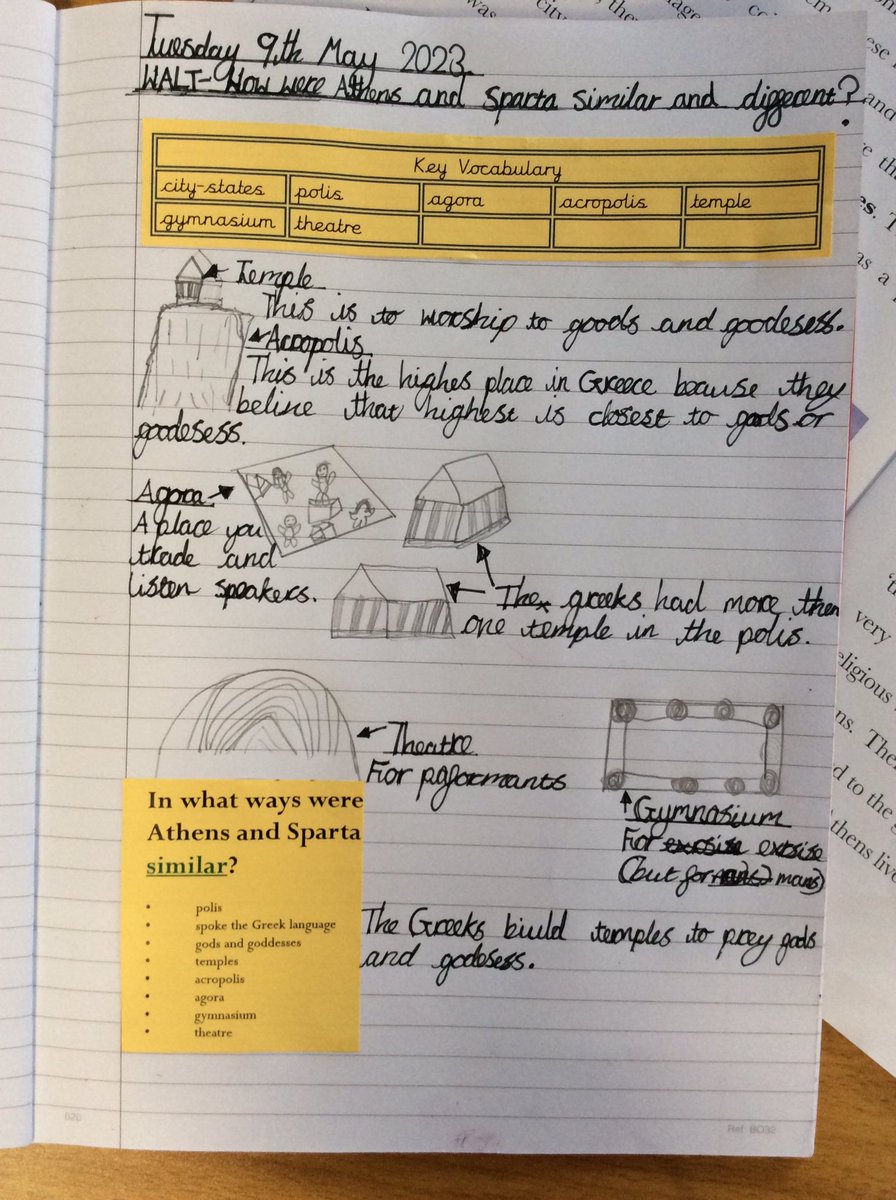 Tuesday 9th May 2023
WALT- How were Athens and Sparta similar and diggerent?
Key Vocabulary
city-states polis agora acropolis temple
gymnasium theatre
Temple
This is to worship to goods and goodesess.
Acropolis
This is the highes place in Greece because they
beline that highest is closest to gods or
goodesess.
Agora
A place you
trade and
listen speakers.
The greeks had more then
one temple in the polis.
Theatre
For pajormants
Gymnasium
For extsise
(but for mans)
In what ways were
Athens and Sparta
similar?
• polis
• spoke the Greek language
• gods and goddesses
• temples
• acropolis
• agora
• gymnasium
• theatre
The Greeks biuld temples to prey gods
and godesess.
620
Ref: BO32